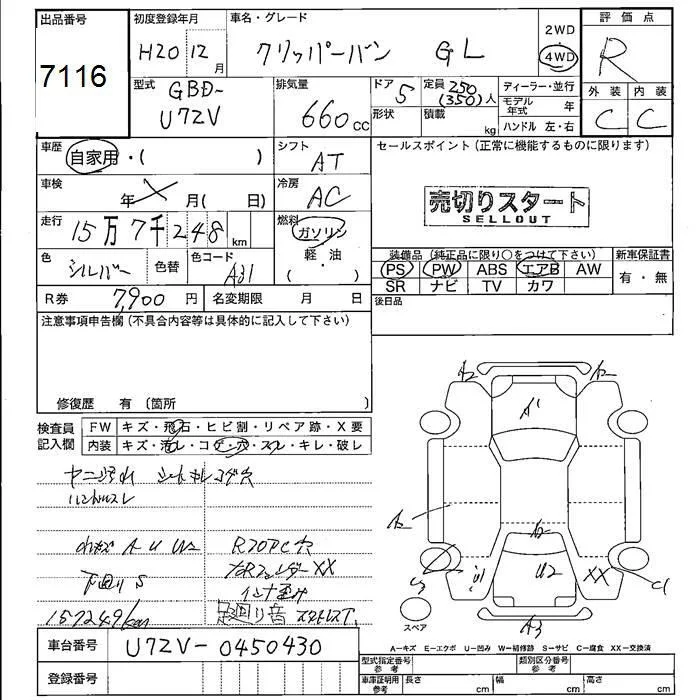 出品番号
7116
初度登録年月
H20 12 月
車名・グレード
クリッパーバン GL
2WD
4WD
評価点
R
型式
GBD-
U72V
排気量
660 cc
ドア
5
形状
定員 250
(350)人
積載
kg
ディーラー・並行
モデル年式 年
ハンドル 左・右
外装 内装
C C
車歴
自家用・( )
シフト
AT
セールスポイント(正常に機能するものに限ります)
車検
年 月( 日)
冷房
AC
売切りスタート
SELLOUT
走行
15万7千248 km
燃料
ガソリン
軽・油
( )
色
シルバー
色替
色コード
A31
装備品(純正品に限り○をつけて下さい)
PS PW ABS エアB AW
SR ナビ TV カワ
新車保証書
有・無
R券 7,900 円
名変期限 月 日
後日品
注意事項申告欄(不具合内容等は具体的に記入して下さい)
修復歴 有(箇所 )
検査員記入欄
FW キズ・飛石・ヒビ割・リペア跡・X要
内装 キズ・汚レ・コゲ・穴・スレ・キレ・破レ
ハンドルスレ
A U W2
下回り S
XX
157249km
足廻り音
A2
A1
A2
A2
U2
XX
C1
A3
スペア
A-キズ E-エクボ U-凹み W-補修跡 S-サビ C-腐食 XX-交換済
車台番号 U72V-0450430
登録番号
型式指定番号
参考
類別区分番号
参考
車庫証明用
参考
長さ cm
幅 cm
高さ cm